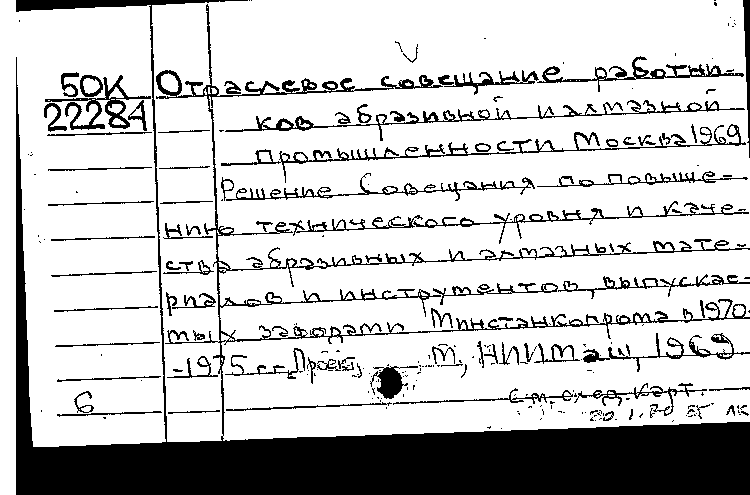 V
50К Отраслевое совещание работни-
22284 ков абразивной и алмазной
промышленности Москва 1969.
Решение Совещания по повыше-
нию технического уровня и каче-
ства абразивных и алмазных мате-
риалов и инструментов, выпускае-
мых заводами Минстанкопрома в 1970-
-1975 г.г. Проект, М, НИИМаш, 1969
6 См. след. карт.
20.1.70 ЛК